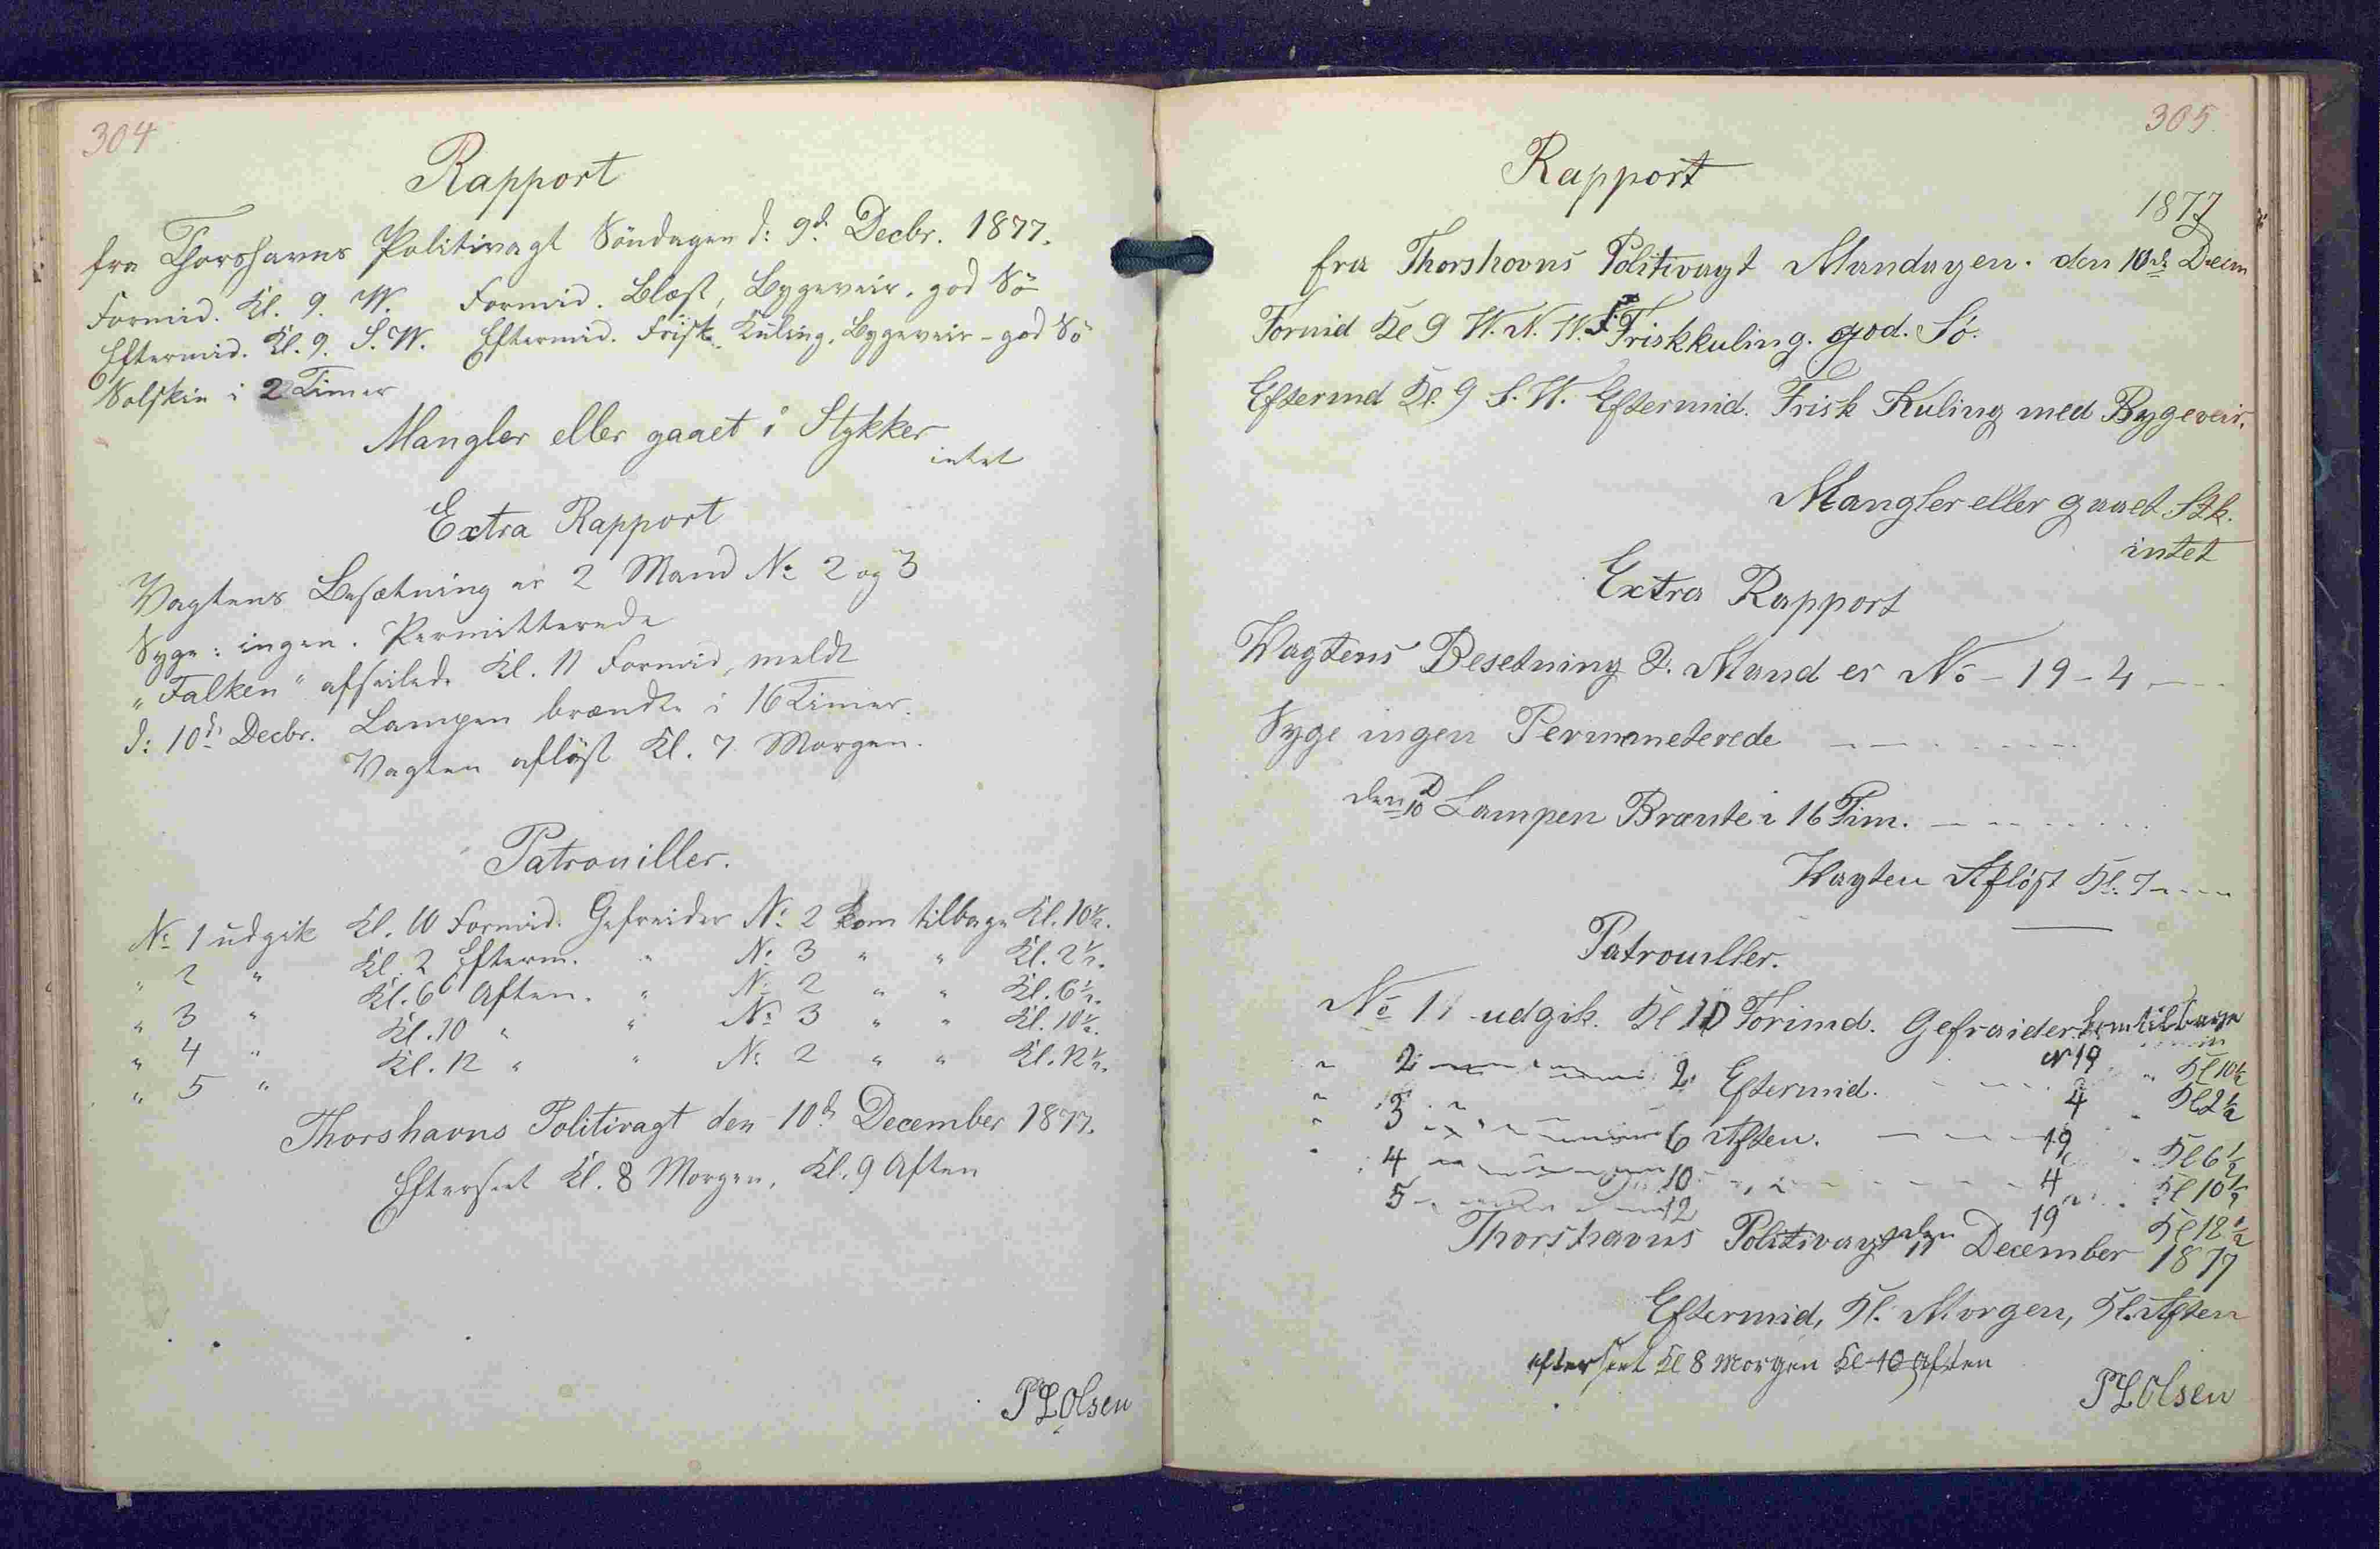 304
Rapport
fra Thorshavns Politivagt Söndagen d: 9d. Decbr. 1877.
Formid. Kl. 9. W. Formid. Blæst, Bygeveir, god Sö
Eftermid. Kl. 9. S.W. Eftermid. Frisk Kuling, Bygeveir - god Sö
Solskin i 2 Timer
Mangler eller gaaet i Stykker
intet
Extra Rapport
Vagtens Besætning er 2 Mand No 2 og 3
Syge: ingen. Permitterede
"Falken" afseilede Kl. 11 Formid, meldt
d: 10d. Decbr. Lampen brændte i 16 Timer.
Vagten aflöst Kl. 7 Morgen.
Patrouiller.
No 1 udgik Kl. 10 Formid. Gefreider No 2 kom tilbage Kl. 10½.
" 2 " Kl. 2 Efterm. " No 3 " " Kl. 2½.
" 3 " Kl. 6 Aften. " No 2 " " Kl. 6½.
" 4 " Kl. 10 " " No 3 " " Kl. 10½.
" 5 " Kl. 12 " " No 2 " " Kl. 12½.
Thorshavns Politivagt den 10d. December 1877.
Efterseet Kl. 8 Morgen, Kl. 9 Aften
P L Olsen
305.
Rapport
1877
fra Thorshavns Politivagt Mandagen. den 10de Decm
Formid Kl 9 W. N. W. F. Friskkuling. god. Sø.
Eftermd Kl. 9 S. W. Eftermid. Frisk Kuling med Bygeveir.
Mangler eller gaaet Stk.
intet
Extra Rapport
Wagtens Besetning 2. Mand er No - 19 - 4
Syge ingen Permaneterede
den 10 D Lampen Brænte i 16 Tim.
Wagten Afløst Kl. 7
Patrouiller.
No 1 udgik. Kl 10 Forimd. Gefraider kom tilbage
N 19 " Kl 10½
" 2 2 Eftermid. 4 " Kl 2½
" 3 6 Aften. 19 " Kl 6½
" 4 10 4 Kl 10½
5 12 19 Kl 12½
Thorshavns Politivagt den 11 December 1877
Eftermid, Kl. Morgen, Kl. Aften
efterseet Kl 8 Morgen Kl 10 Aften
P L Olsen